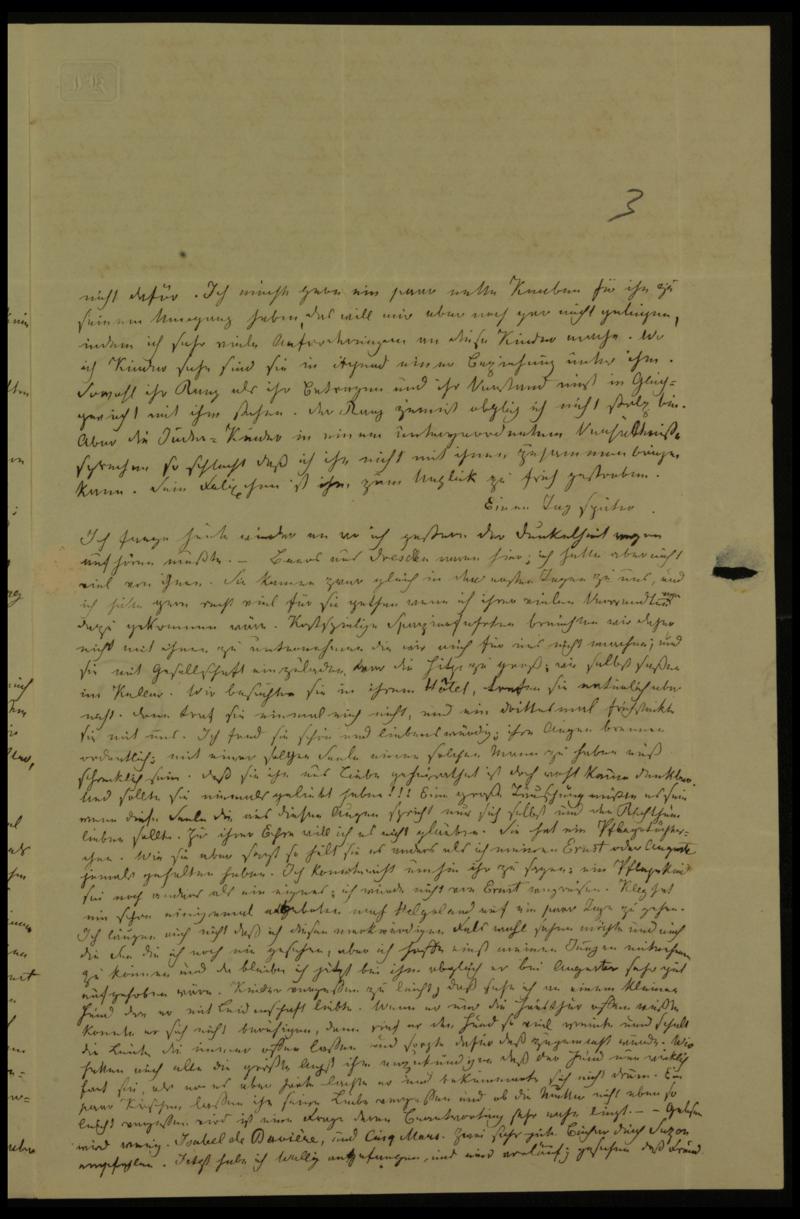 3
nicht dafür. Ich möchte gern ein paar nette Knaben für ihn zu
seinem Umgang haben, das will mir aber noch gar nicht gelingen,
indem ich sehr viele Anforderungen an diese Kinder mache. Wo
ich Kinder sehe sind sie in irgend einer Beziehung unter ihm.
Sowohl ihr Rang als ihr Betragen und ihr Verstand muß in Gleich=
gewicht mit ihm stehen. der Rang zumeist obgleich ich nicht stolz bin.
Aber die Kinder in einem untergeordneten Verhältniße
sprechen so schlecht daß ich ihn nicht mit ihnen zusammenbringen
kann. Sein ist ihm zum Unglück zu früh gestorben.
Einen Tag später.
Ich fange heute wieder an wo ich gestern der Dunkelheit wegen
aufhören mußte. – aus Dresden waren hier; ich hatte aber nicht
viel von ihnen. Sie kamen zwar gleich in den ersten Tagen zu uns, und
ich hätte gern recht viel für sie gethan wenn ich ihrer vielen Verwandten wegen
dazu gekommen wäre. Kostspielige Spazierfahrten brauchten wir daher
nicht mit ihnen zu unternehmen die wir auch für uns nicht machen; und
sie mit Gesellschaft einzuladen, war die Hitze zu groß; wir selbst saßen
im Keller. Wir besuchten sie in ihrem Hôtel, trafen sie natürlich aber
nicht. dann traf sie einmal mich nicht, und ein drittesmal frühstückte
sie mit uns. Ich fand sie schön und liebenswürdig; ihre Augen brennen
ordentlich; mit einer solchen Seele einen solchen Mann zu haben muß
schrecklich sein. daß sie ihn aus Liebe geheirathet ist doch wohl kaum denkbar.
Und sollte sie niemals geliebt haben!!! Eine große Täuschung müßte es sein
wenn diese Seele die aus diesen Augen spricht nur sich selbst und den Reichthum
lieben sollte. Zu ihrer Ehre will ich es nicht glauben. Sie hat ein Pflegetöchter=
chen. Wie sie aber sagt so hält sie es anders als ich meinen Ernst oder Auguste
jemals gehalten habe. Ich konnte nicht umhin ihr zu sagen: ein Pflegekind
sei noch anders als ein eignes; ich würde nicht von Ernst wegreisen. Klez hat
mir schon einigemal angeboten nach Helgoland auf ein paar Tage zu gehen.
Ich läugne auch nicht daß ich diesen merkwürdigen Fels wohl sehen möchte und auch
die See die ich noch nie gesehen, aber ich hoffe einst meinen Jungen mitnehmen
zu können und da bleibe ich jetzt bei ihm obgleich er bei Augusten sehr gut
aufgehoben wäre. Kinder vergeßen zu leicht; das sehe ich an einem kleinen
Hund den er mit Leidenschaft liebte. Wenn er nur die Hausthür offen wußte
konnte er sich nicht beruhigen, dann rief er den Hund so viel weinte und schalt
die Leute die immer offen lassen und sorgte dafür daß zugemacht wurde. Wir
hatten auch alle die größte Angst ihm anzukündigen daß der Hund nun wirklich
fort sei, als er es aber hörte lachte er und bekümmerte sich nicht drum. Ein
paar Kirschen lassen ihn seine Liebe vergeßen und ob die Mutter nicht eben so
leicht vergeßen wird ist eine Frage deren Beantwortung sehr nahe liegt. – – Gelesen
wird wenig. Isabel de Bavière, und Cinq Mars. zwei sehr gute Bücher durch Suzon
empfohlen. Jetzt habe ich Wally angefangen, und nur vorläufig gesehen daß